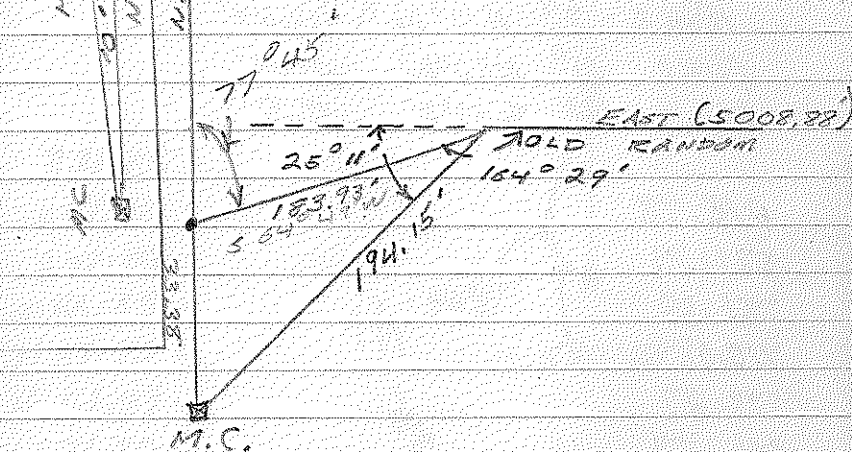 77°45'
EAST (5008.88')
OLD RANDOM
25° 11'
164° 29'
183.93'
194.15'
33.38'
M.C.